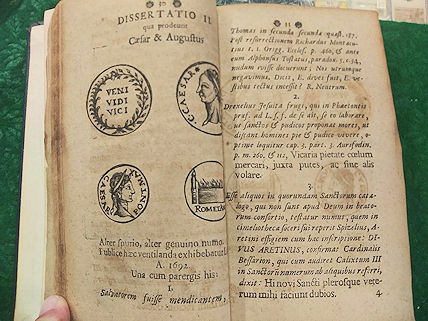 30
DISSERTATIO II
qua prodeunt
Cæsar & Augustus
VENI
VIDI
VICI
CÆSAR
CAESAR
PON. MA
ROM ET A
Alter spurio, alter genuino numo
Publice hac ventilanda exhibebatur
A. 1692.
Una cum parergis his:
1.
Salvatorem fuisse mendicantem,
31
Thomas in secunda secundæ quæst. 187.
Post resurrectionem Richardus Montacu-
tius t. 1. Origg. Eccles. p. 460, & ante
eum Alphonsus Tostatus, paradox. 5. c. 34,
nudum vixisse docuerunt; Nos utrumque
negavimus. Dicis, E. deves fuit, E. ve-
stibus tectus incessit? R. Neutrum.
2.
Drexelius Jesuita frugi, qui in Phaetontis
præf. ad L. s. f. de se ait, se eo laborare,
ut sanctos & pudicos proponat mores, ut
discant homines pie & pudice vivere, o-
ptime loquitur cap. 3. part. 3. Aurifodin.
p. m. 260, & 112, Vicaria pietate cœlum
mercari, juxta putes, ac sine alis
volare.
3.
Esse aliquos in quorundam Sanctorum cata-
logo, qui non sunt apud Deum in beato-
rum consortio, testatur numus, quem in
cimeliotheca soceri sui reperit Spizelius, A-
retini effigiem cum hac inscriptione: DI-
VUS ARETINUS, confirmat Cardinalis
Bessarion, qui cum audiret Calixtum III
in Sanctorum numerum ab aliquibus referri,
dixit: Hi novi Sancti plerosque vete-
rum mihi faciunt dubios.
4